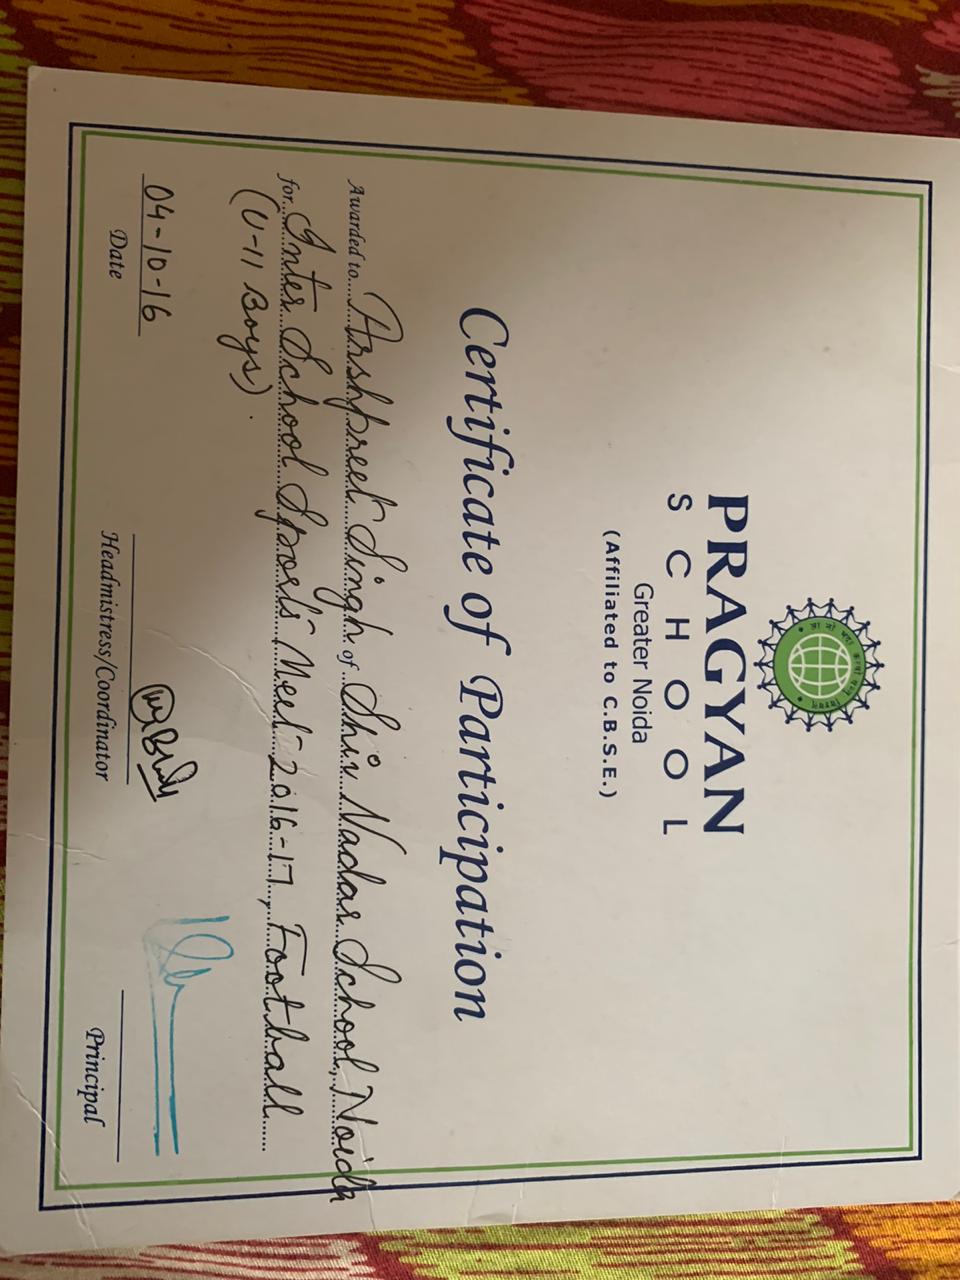 PRAGYAN
SCHOOL
Greater Noida
(Affiliated to C.B.S.E.)
Certificate of Participation
Awarded to Arshpreet Singh of Shiv Nadar School, Noida
for Inter School Sports Meet-2016-17, Football
(U-11 Boys).
04-10-16
Date
Headmistress/Coordinator
Principal